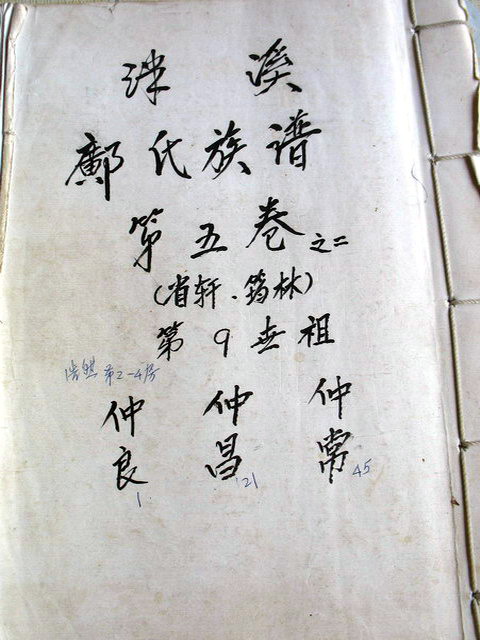 洣溪
鄺氏族谱
第五卷之二
(省轩、筠林)
第9世祖
浩然第2-4房
仲良 仲昌 仲常
1 21 45